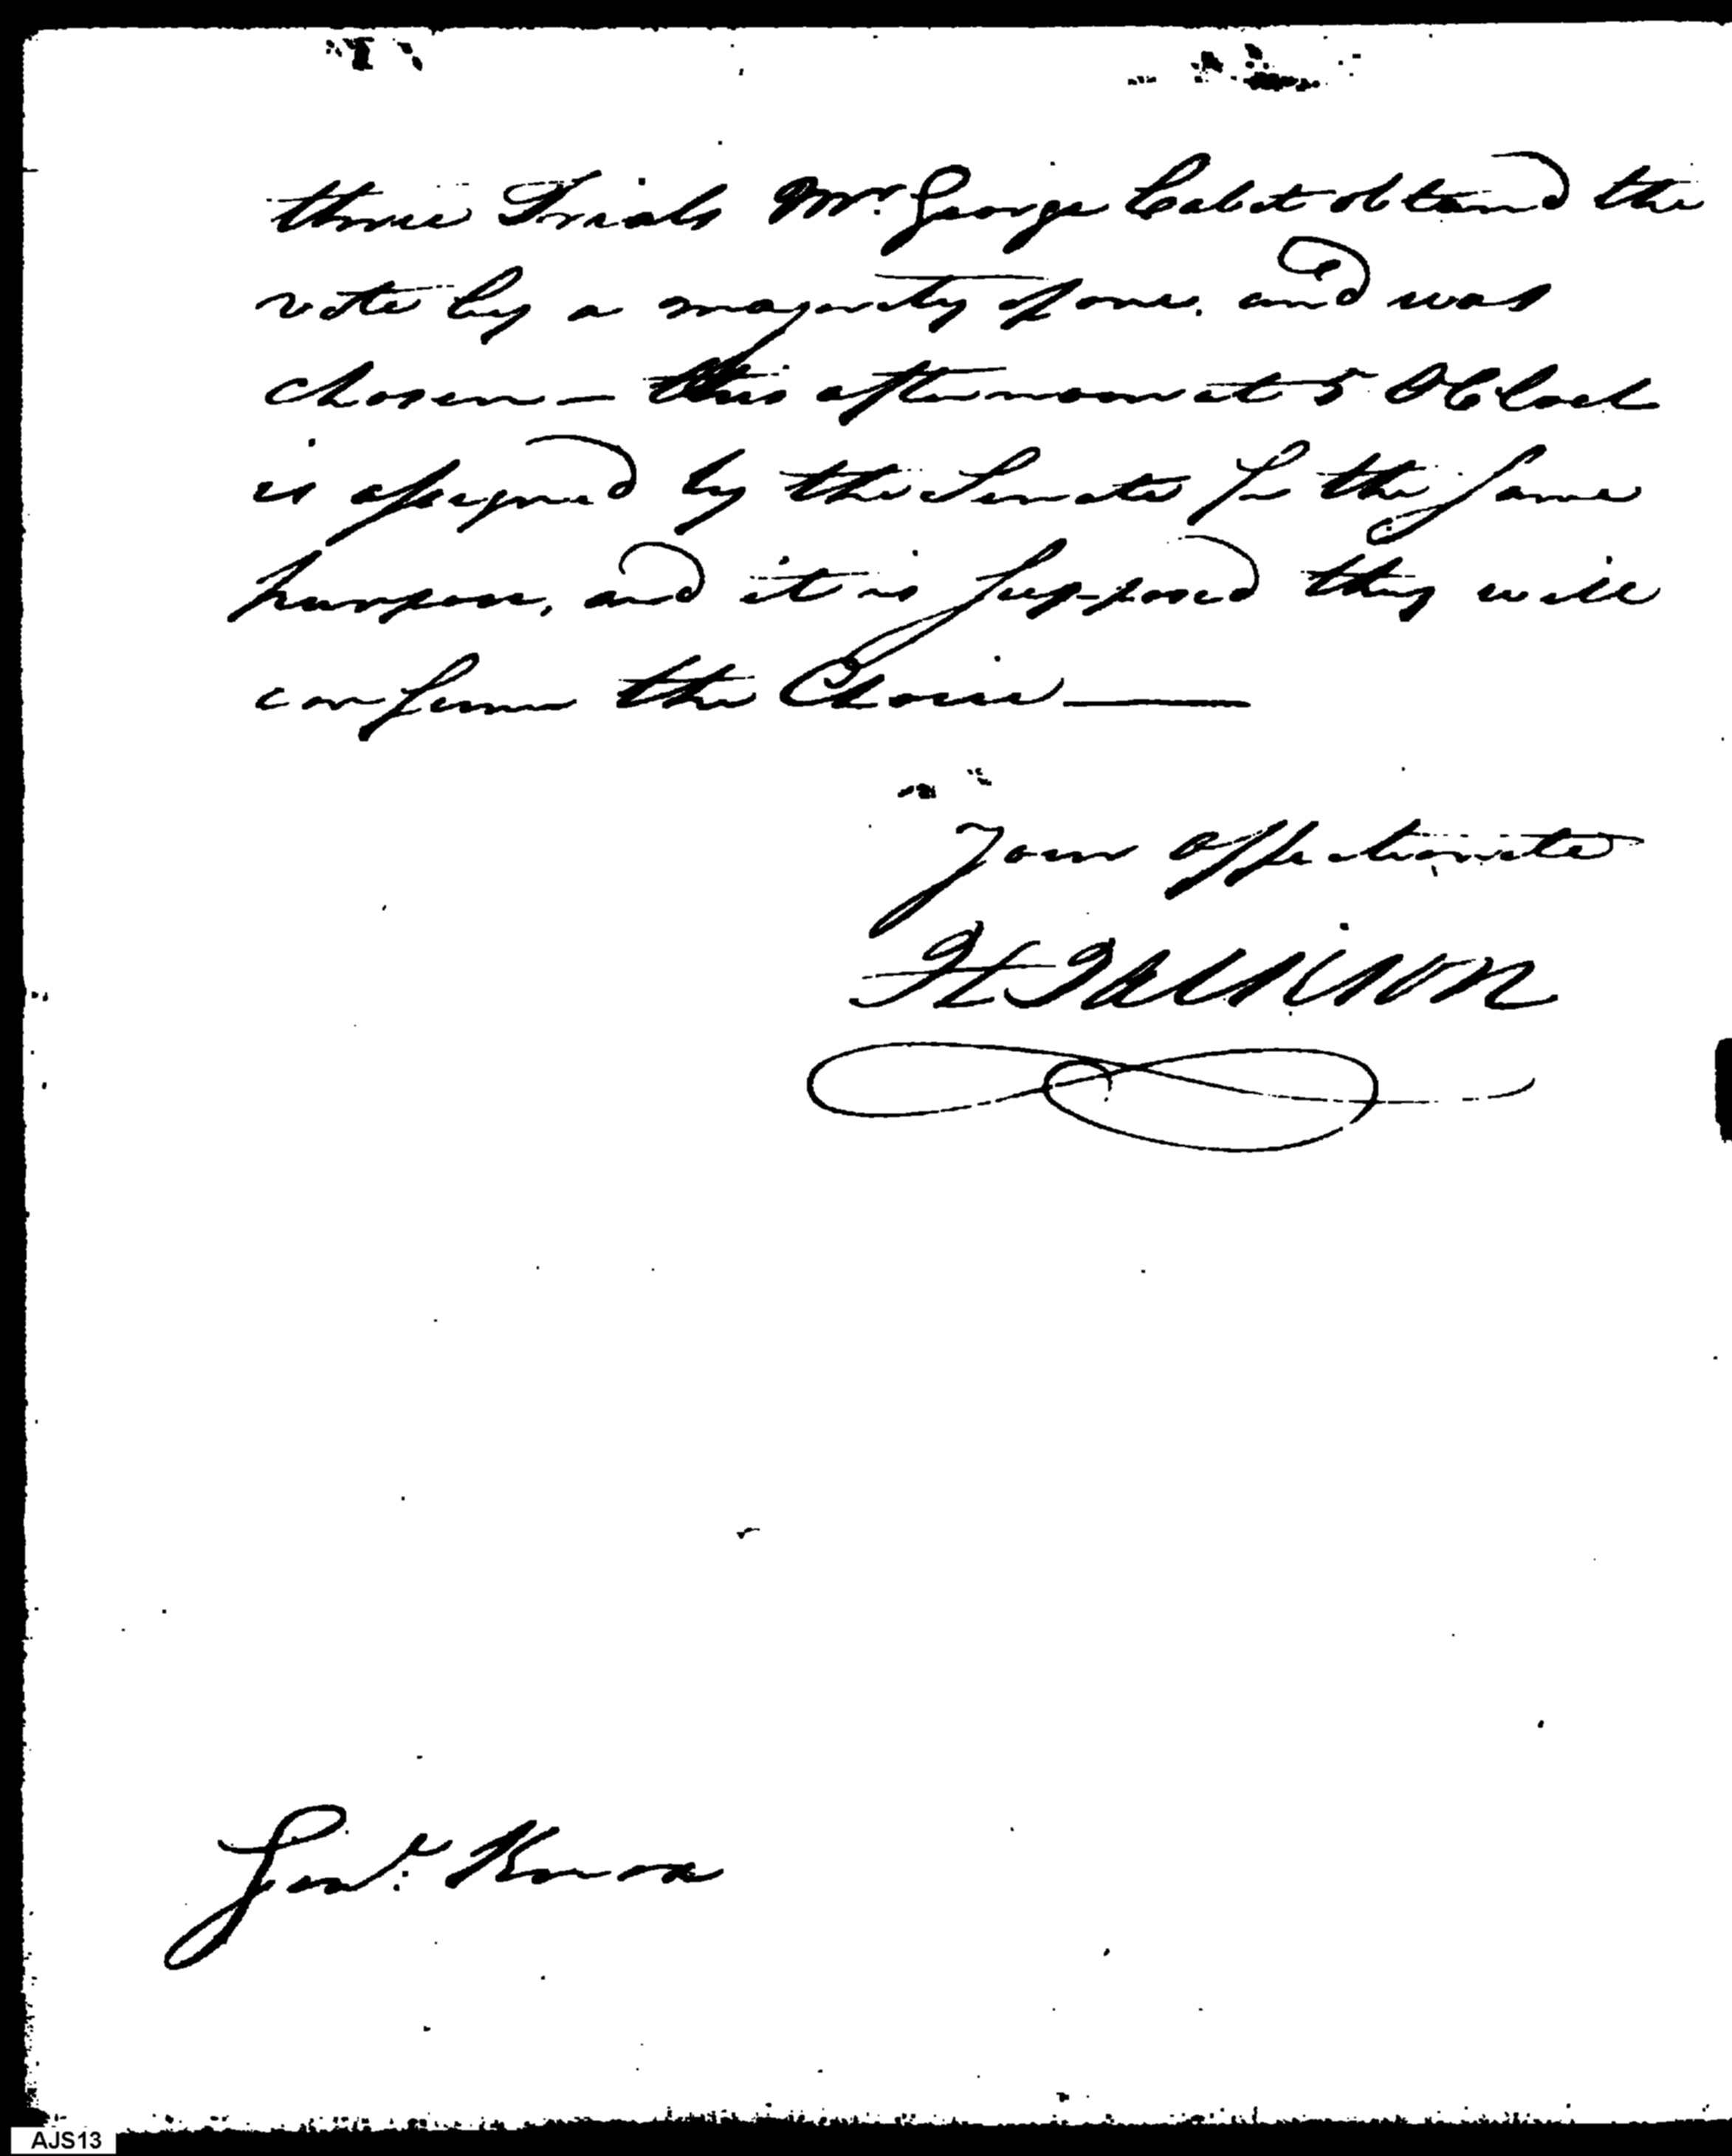 three Trials Mr. George Cabot obtaind the
vote by a majority of one, and was
chosen — this afternoon at 5 OClock
is assigned by the Senate for the same
purpose, and it is supposed they will
confirm the Choice —
Your affectionate
H Jackson
Genl. Knox
AJS13